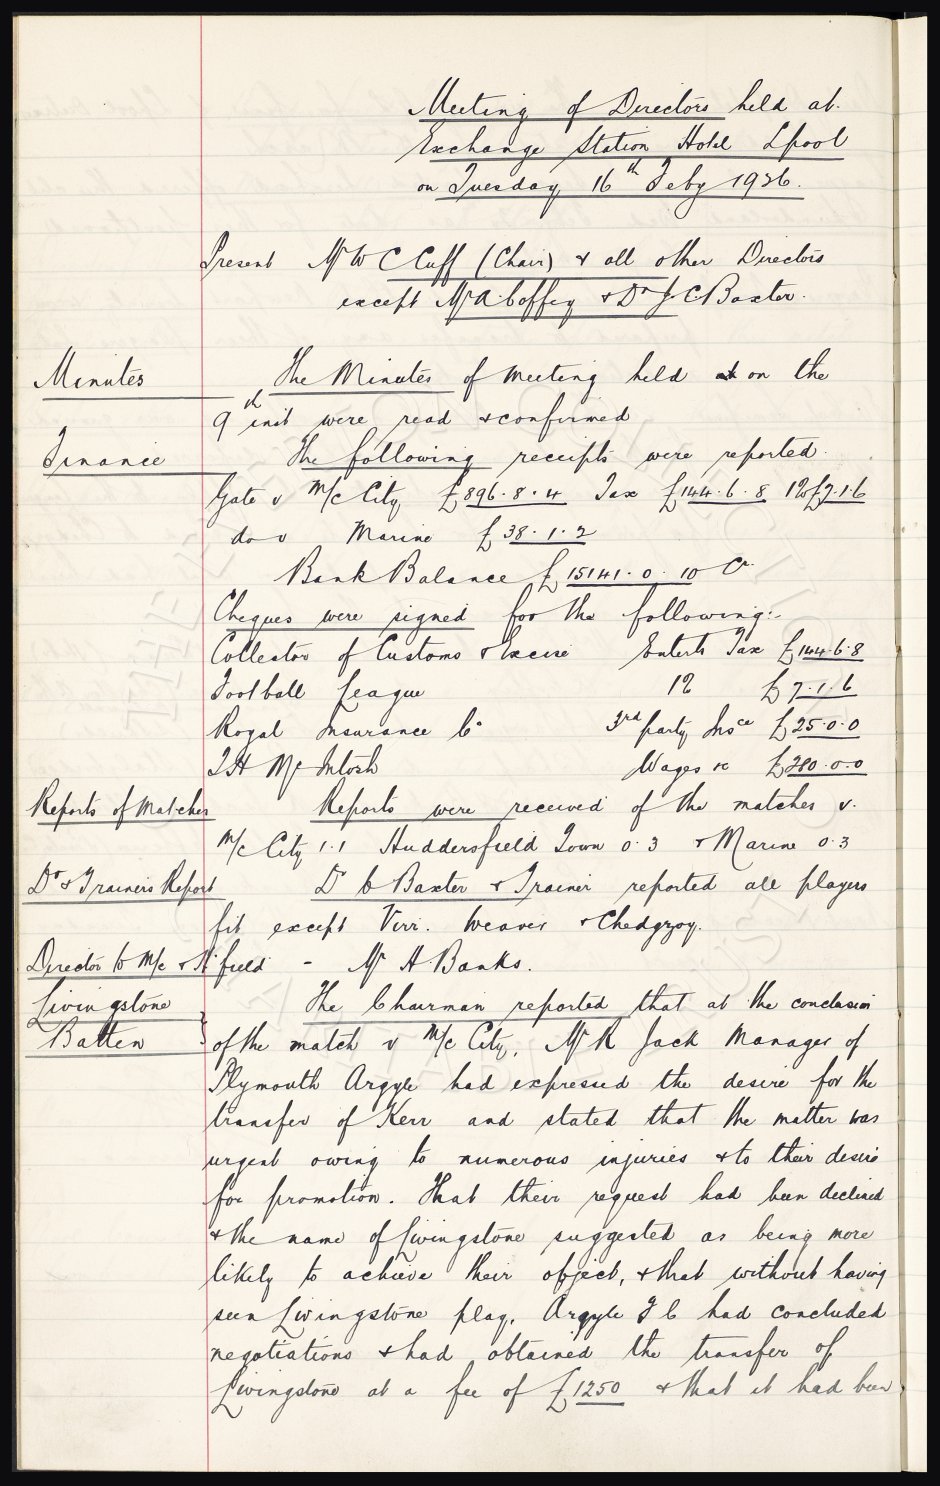 Meeting of Directors held at
Exchange Station Hotel Lpool
on Tuesday 16th Feby 1926.
Present Mr W C Cuff (Chair) & all other Directors
except Mr A Coffey & Dr J C Baxter.
Minutes The Minutes of meeting held at on the
9th inst were read & confirmed
Finance The following receipts were reported.
Gate v M/c City £896.8.4 Tax £144.6.8 1% £7.1.6
do v Marine £38.1.2
Bank Balance £15141.0.10 Cr
Cheques were signed for the following:-
Collector of Customs & Excise Enterts Tax £144.6.8
Football League 1% £7.1.6
Royal Insurance Co 3rd party Insce £25.0.0
T H McIntosh Wages &c £280.0.0
Reports of Matches Reports were received of the matches v.
M/c City 1.1 Huddersfield Town 0.3 & Marine 0.3
Dr & Trainers Report Dr C Baxter & Trainer reported all players
fit except Virr. Weaver & Chedgzoy.
Director to M/c & H'field - Mr A Banks.
Livingstone The Chairman reported that at the conclusion
Batten of the match v M/c City, Mr R Jack Manager of
Plymouth Argyle had expressed the desire for the
transfer of Kerr and stated that the matter was
urgent owing to numerous injuries & to their desire
for promotion. That their request had been declined
& the name of Livingstone suggested as being more
likely to achieve their object, & that without having
seen Livingstone play, Argyle F C had concluded
negotiations & had obtained the transfer of
Livingstone at a fee of £1250 & that it had been